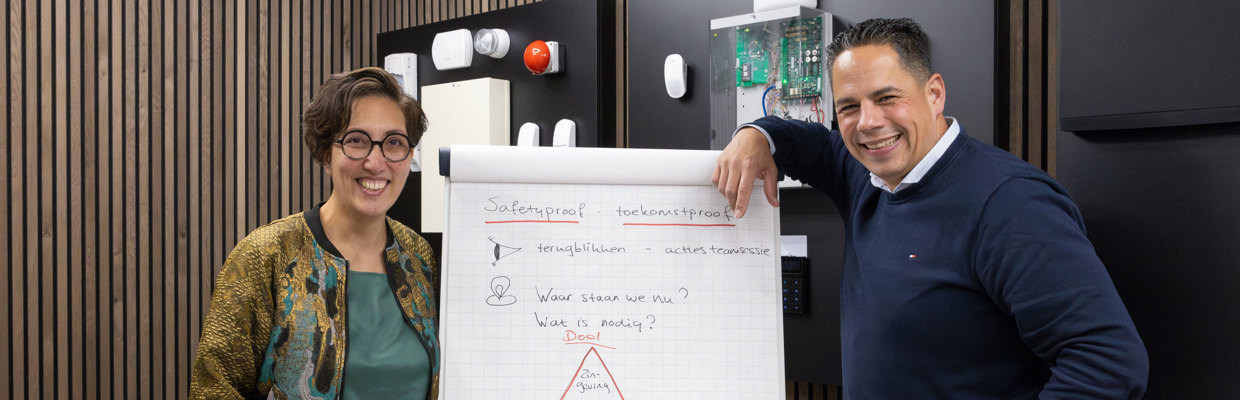 Safetyproof - toekomstproof
terugblikken - acties teamsessie
Waar staan we nu?
Wat is nodig?
Doel
Zin-
geving